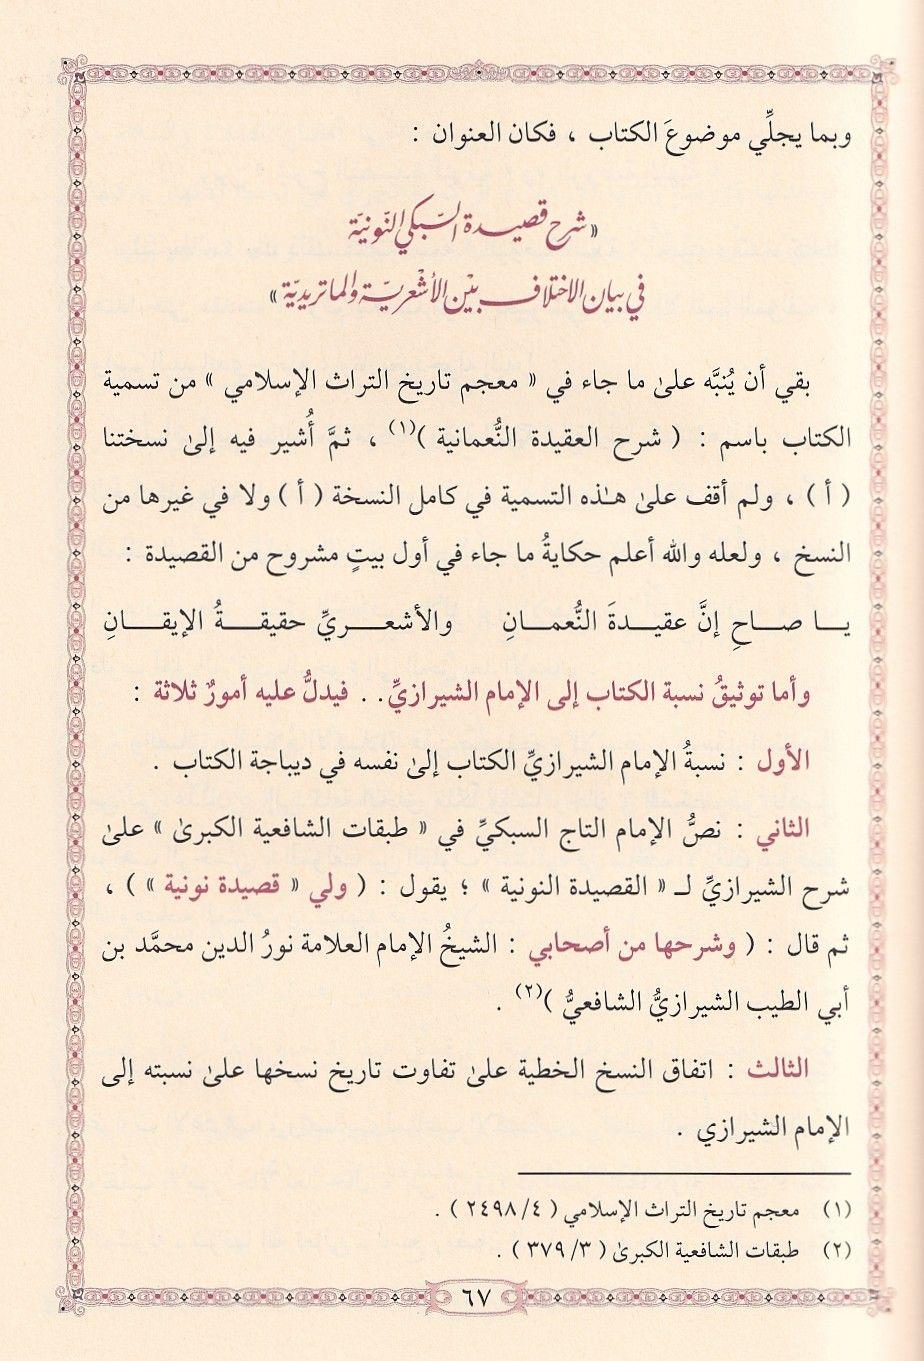 وبما يجلِّي موضوعَ الكتاب ، فكان العنوان :
« شرح قصيدة السّبكي النّونيّة
في بيان الاختلاف بيْن الأشْعريّة والماتريديّة »
بقي أن يُنبَّه علىٰ ما جاء في « معجم تاريخ التراث الإسلامي » من تسمية
الكتاب باسم : ( شرح العقيدة النُّعمانية )(١) ، ثمَّ أُشير فيه إلىٰ نسختنا
( أ ) ، ولم أقف علىٰ هـٰذه التسمية في كامل النسخة ( أ ) ولا في غيرها من
النسخ ، ولعله والله أعلم حكايةُ ما جاء في أول بيتٍ مشروح من القصيدة :
يـــا صـــاحِ إنَّ عقيـــدةَ النُّعمـــانِ والأشعـــريِّ حقيقـــةُ الإيقـــانِ
وأما توثيقُ نسبة الكتاب إلى الإمام الشيرازيِّ. . فيدلُّ عليه أمورٌ ثلاثة :
الأول : نسبةُ الإمام الشيرازيِّ الكتاب إلىٰ نفسه في ديباجة الكتاب .
الثاني : نصُّ الإمام التاج السبكيِّ في « طبقات الشافعية الكبرىٰ » علىٰ
شرح الشيرازيِّ لـ « القصيدة النونية » ؛ يقول : ( ولي « قصيدة نونية » ) ،
ثم قال : ( وشرحها من أصحابي : الشيخُ الإمام العلامة نورُ الدين محمَّد بن
أبي الطيب الشيرازيُّ الشافعيُّ )(٢) .
الثالث : اتفاق النسخ الخطية علىٰ تفاوت تاريخ نسخها علىٰ نسبته إلى
الإمام الشيرازي .
(١) معجم تاريخ التراث الإسلامي ( ٤/ ٢٤٩٨ ) .
(٢) طبقات الشافعية الكبرىٰ ( ٣/ ٣٧٩ ) .
٦٧